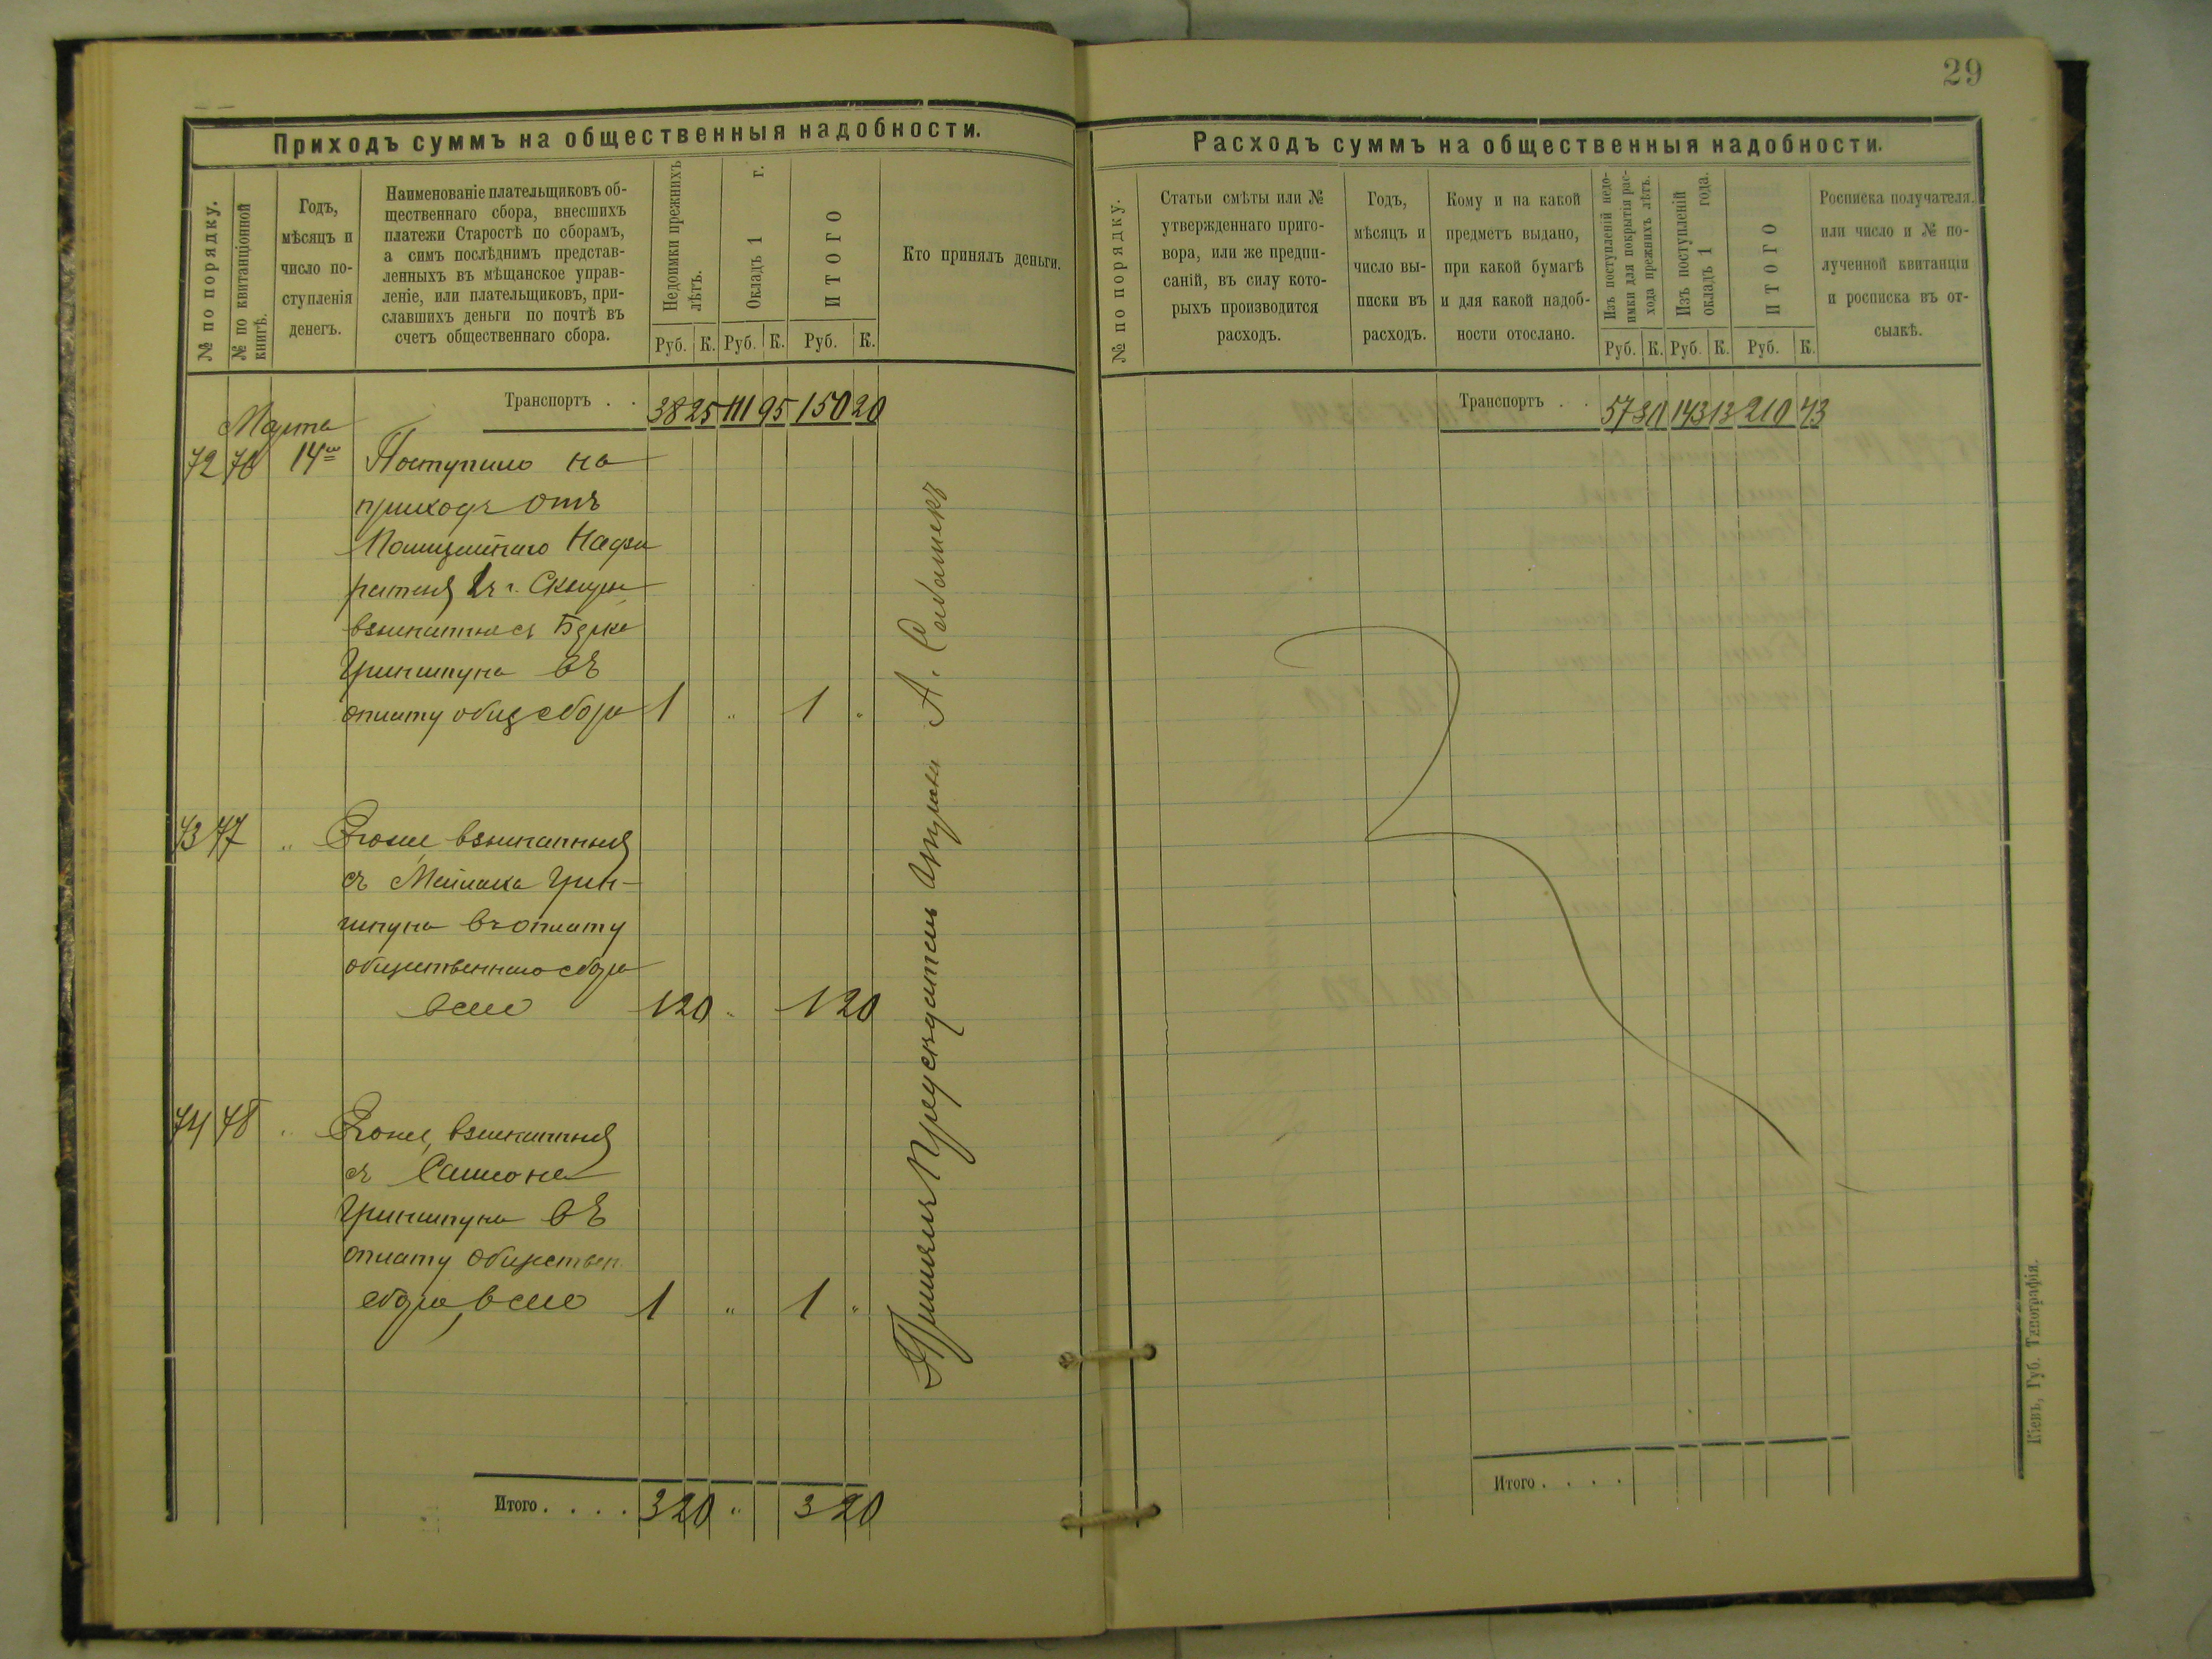 29
Приходъ суммъ на общественныя надобности.
№ по порядку.
№ по квитанціонной
книгѣ.
Годъ,
мѣсяцъ и
число по-
ступленія
денегъ.
Наименованіе плательщиковъ об-
щественнаго сбора, внесшихъ
платежи Старостѣ по сборамъ,
а симъ послѣднимъ представ-
ленныхъ въ мѣщанское управ-
леніе, или плательщиковъ, при-
славшихъ деньги по почтѣ въ
счетъ общественнаго сбора.
Недоимки прежнихъ
лѣтъ.
Окладъ 1 г.
ИТОГО
Кто принялъ деньги.
Руб. К. Руб. К. Руб. К.
Транспортъ . . 38 25 111 95 150 20
Марта
72 76 14го Поступило на
приходъ отъ
Полицейскаго Надзи
рателя г. Сквиры
взысканные съ Берка
Гриншпуна въ
оплату общ сбора 1 " 1 "
73 77 " Тоже взысканныя
съ Мейлаха Грин-
шпуна въ оплату
общественнаго сбора
всего 1 20 " 1 20
74 78 " Тоже, взысканныя
съ Самсона
Гриншпуна въ
оплату обществен
сбора, всего 1 " 1 "
Итого . . . . 3 20 " 3 20
Принялъ Предсѣдатель Управы А.
Расходъ суммъ на общественныя надобности.
№ по порядку.
Статьи смѣты или №
утвержденнаго приго-
вора, или же предпи-
саній, въ силу кото-
рыхъ производится
расходъ.
Годъ,
мѣсяцъ и
число вы-
писки въ
расходъ.
Кому и на какой
предметъ выдано,
при какой бумагѣ
и для какой надоб-
ности отослано.
Изъ поступленій недо-
имки для покрытія рас-
хода прежнихъ лѣтъ.
Изъ поступленій
окладъ 1 года.
ИТОГО
Росписка получателя
или число и № по-
лученной квитанціи
и росписка въ от-
сылкѣ.
Руб. К. Руб. К. Руб. К.
Транспортъ . . 143 13 210 43
Итого . . . .
Кіевъ, Губ. Типографія.